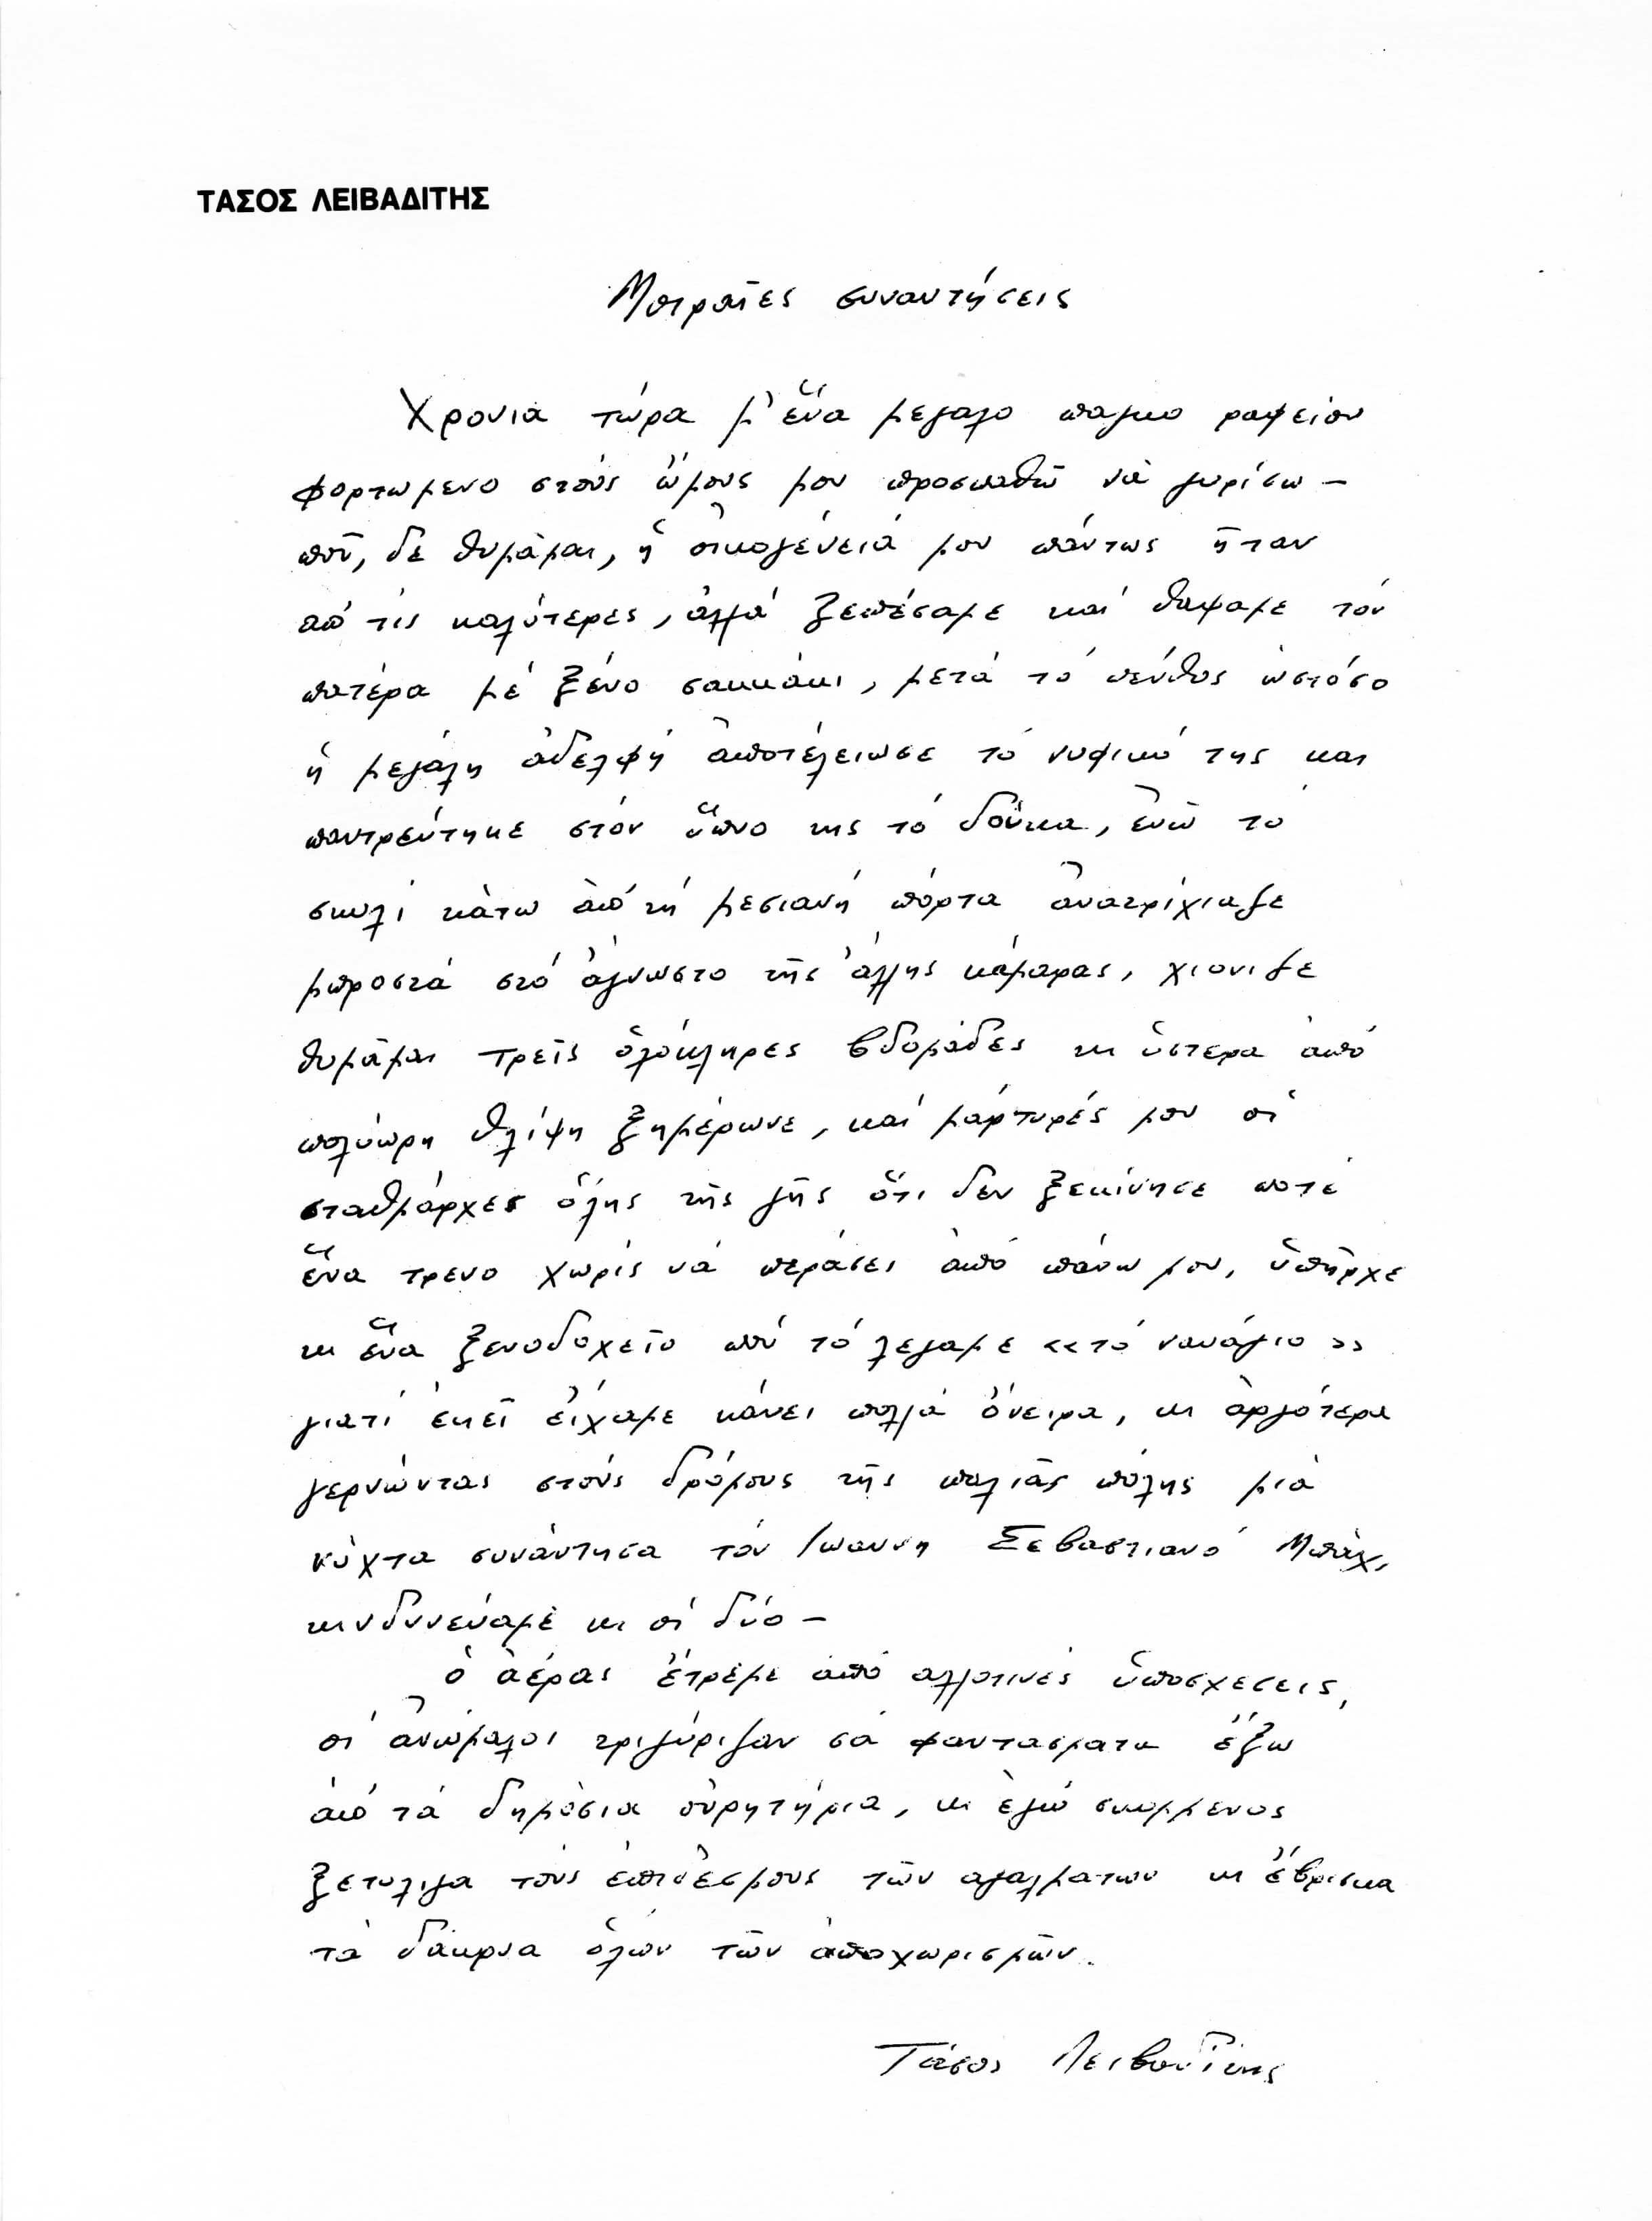 ΤΑΣΟΣ ΛΕΙΒΑΔΙΤΗΣ
Μοιραῖες συναντήσεις
Χρόνια τώρα μ' ἕνα μεγάλο πάγκο ραφείου
φορτωμένο στούς ὤμους μου προσπαθῶ νά γυρίσω –
ποῦ, δέ θυμᾶμαι, ἡ οἰκογένειά μου πάντως ἦταν
ἀπό τίς καλύτερες, ἀλλά ξεπέσαμε καί θάψαμε τόν
πατέρα μέ ξένο σακκάκι, μετά τό πένθος ὡστόσο
ἡ μεγάλη ἀδελφή ἀποτέλειωσε τό νυφικό της και
παντρεύτηκε στόν ὕπνο της τό δούκα, ἐνῶ το
σκυλί κάτω ἀπό τή μεσιανή πόρτα ἀνατρίχιαζε
μπροστά στό ἄγνωστο τῆς ἄλλης κάμαρας, χιόνιζε
θυμᾶμαι τρεῖς ὁλόκληρες βδομάδες κι ὕστερα ἀπό
πολύωρη θλίψη ξημέρωνε, καί μάρτυρές μου οἱ
σταθμάρχες ὅλης τῆς γῆς ὅτι δεν ξεκίνησε ποτέ
ἕνα τρενο χωρίς νά περάσει ἀπό πάνω μου, ὑπῆρχε
κι ἕνα ξενοδοχεῖο πού τό λέγαμε «τό ναυάγιο»
γιατί ἐκεῖ εἴχαμε κάνει πολλά ὄνειρα, κι ἀργότερα
γερνώντας στούς δρόμους τῆς παλιᾶς πόλης μιά
νύχτα συνάντησα τόν Ιωάννη Σεβαστιανό Μπάχ,
κινδυνεύαμε κι οἱ δύο –
ὁ ἀέρας ἔτρεμε ἀπό αλλοτινές ὑποσχέσεις,
οἱ ἀνώμαλοι τριγύριζαν σά φαντάσματα ἔξω
ἀπό τά δημόσια οὐρητήρια, κι ἐγώ σκυμμένος
ξετύλιγα τούς ἐπιδέσμους τῶν αγαλμάτων κι ἔβρισκα
τά δάκρυα ὅλων τῶν ἀποχωρισμῶν.
Τάσος Λειβαδίτης